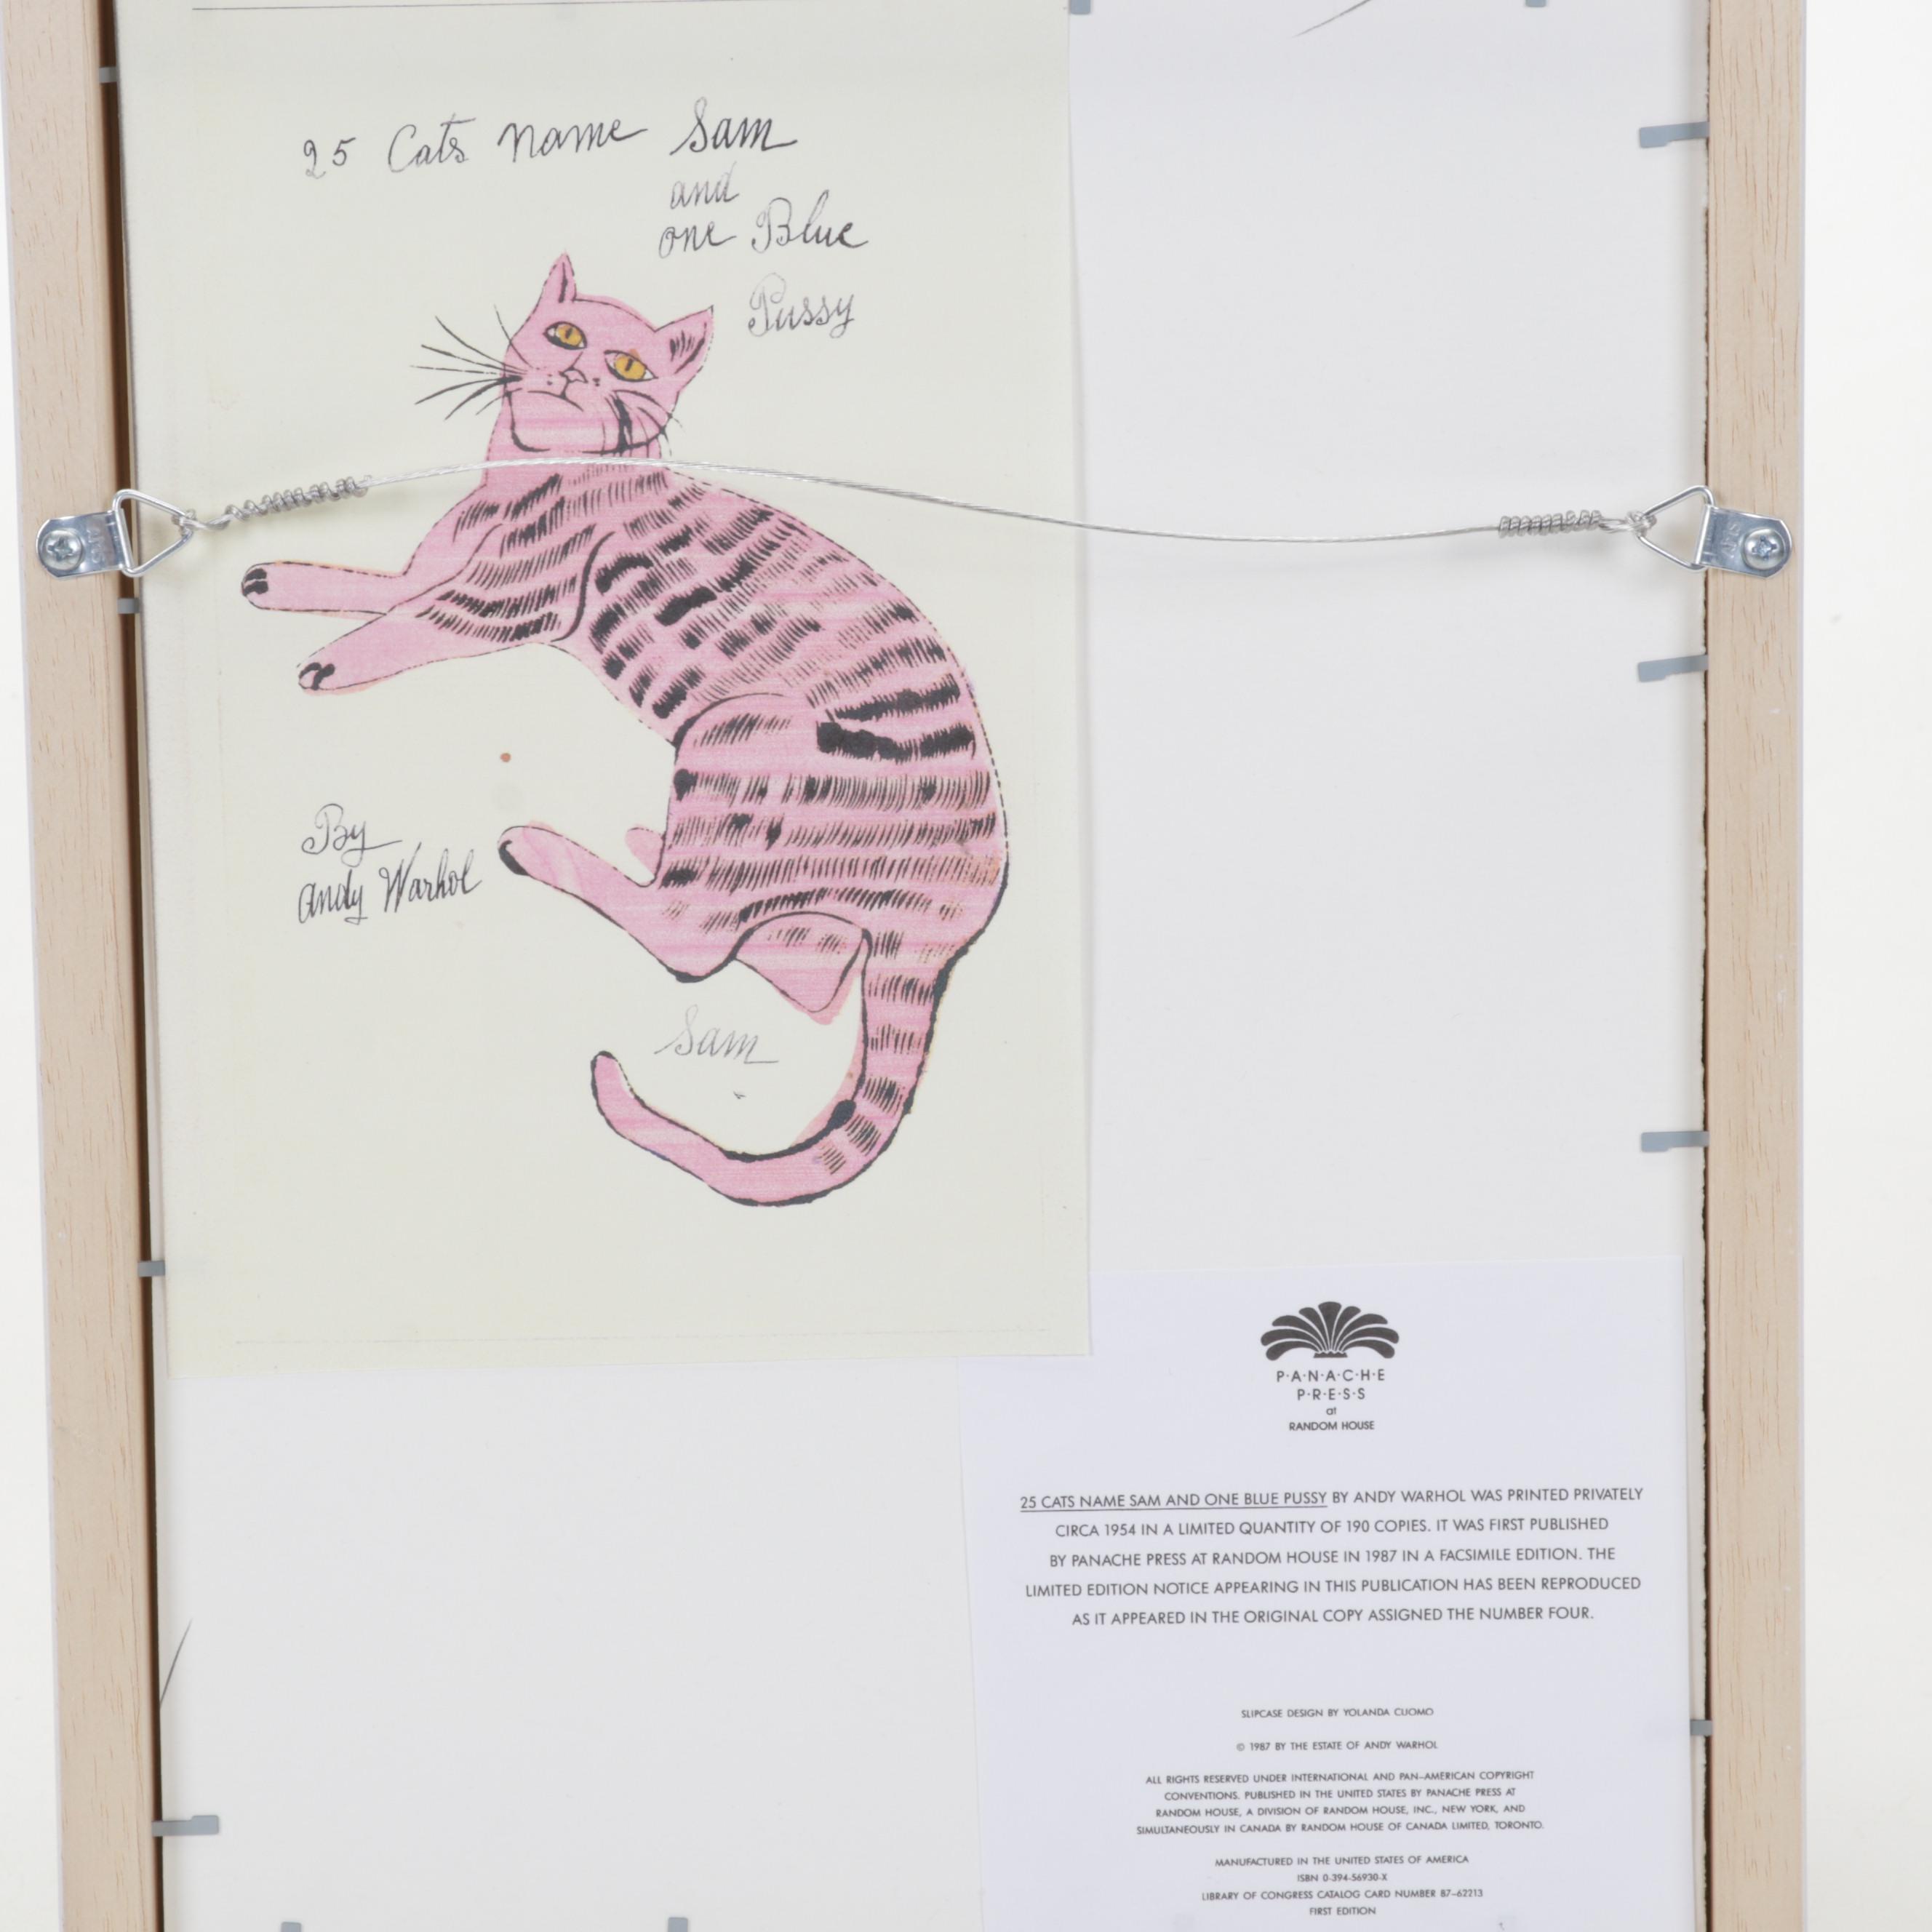 25 Cats name Sam
and
one Blue
Pussy
By
andy Warhol
Sam
P·A·N·A·C·H·E
P·R·E·S·S
at
RANDOM HOUSE
25 CATS NAME SAM AND ONE BLUE PUSSY BY ANDY WARHOL WAS PRINTED PRIVATELY
CIRCA 1954 IN A LIMITED QUANTITY OF 190 COPIES. IT WAS FIRST PUBLISHED
BY PANACHE PRESS AT RANDOM HOUSE IN 1987 IN A FACSIMILE EDITION. THE
LIMITED EDITION NOTICE APPEARING IN THIS PUBLICATION HAS BEEN REPRODUCED
AS IT APPEARED IN THE ORIGINAL COPY ASSIGNED THE NUMBER FOUR.
SLIPCASE DESIGN BY YOLANDA CUOMO
© 1987 BY THE ESTATE OF ANDY WARHOL
ALL RIGHTS RESERVED UNDER INTERNATIONAL AND PAN-AMERICAN COPYRIGHT
CONVENTIONS. PUBLISHED IN THE UNITED STATES BY PANACHE PRESS AT
RANDOM HOUSE, A DIVISION OF RANDOM HOUSE, INC., NEW YORK, AND
SIMULTANEOUSLY IN CANADA BY RANDOM HOUSE OF CANADA LIMITED, TORONTO.
MANUFACTURED IN THE UNITED STATES OF AMERICA
ISBN 0-394-56930-X
LIBRARY OF CONGRESS CATALOG CARD NUMBER 87-62213
FIRST EDITION